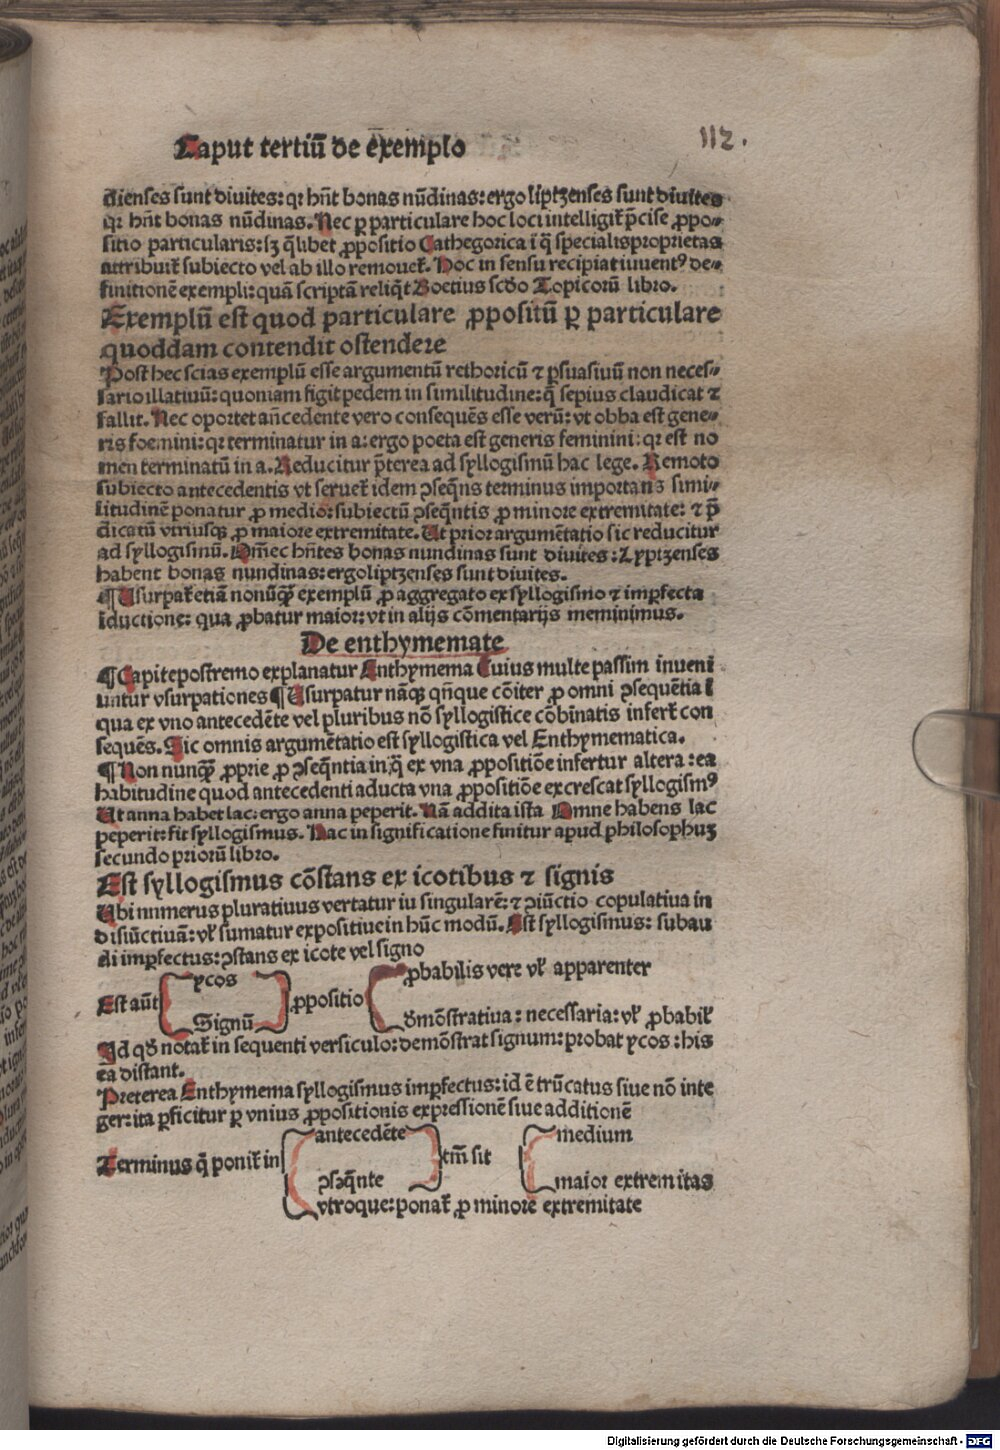 Caput tertiū de exemplo
112.
dienses sunt diuites: qꝛ hn̄t bonas nūdinas: ergo liptzenses sunt diuites
qꝛ hn̄t bonas nūdinas. Nec ꝑ particulare hoc loci intelligit᷑ p̄cise ꝓpo⸗
sitio particularis: sꝫ q̄libet ꝓpositio Cathegorica ī q̄ specialis proprietas
attribuit᷑ subiecto vel ab illo remouet᷑. Hoc in sensu recipiat iuuentꝰ de⸗
finitionē exempli: quā scriptā reliq̄t Boetius scd̄o Topicorū libro.
Exemplū est quod particulare ꝓpositū ꝑ particulare
quoddam contendit ostendere
Post hec scias exemplū esse argumentū rethoricū ⁊ ꝑsuasiuū non neces⸗
sario illatiuū: quoniam figit pedem in similitudine: q̄ sepius claudicat ⁊
fallit. Nec oportet an̄cedente vero consequēs esse verū: vt obba est gene⸗
ris foemini: qꝛ terminatur in a: ergo poeta est generis feminini: qꝛ est no
men terminatū in a. Reducitur p̄terea ad syllogismū hac lege. Remoto
subiecto antecedentis vt seruet᷑ idem ꝯseq̄ns terminus importans simi⸗
litudinē ponatur ꝓ medio: subiectū ꝯseq̄ntis ꝓ minore extremitate: ⁊ p̄
dicatū vtriusqꝫ ꝓ maiore extremitate. Ut prior argumētatio sic reducitur
ad syllogismū. Om̄ec hn̄tes bonas nundinas sunt diuites: Lyptzenses
habent bonas nundinas: ergo liptzenses sunt diuites.
¶ Usurpat᷑ etiā nonūqꝫ̄ exemplū ꝓ aggregato ex syllogismo ⁊ imꝑfecta
īductione: qua ꝓbatur maior: vt in alijs cōmentarijs meminimus.
De enthymemate
¶ Capite postremo explanatur Enthymema Cuius multe passim inueni
untur vsurpationes ¶ Usurpatur nāqꝫ qn̄que cōiter ꝓ omni ꝯsequētia ī
qua ex vno antecedēte vel pluribus nō syllogistice cōbinatis infert᷑ con
sequēs. Sic omnis argumētatio est syllogistica vel Enthymematica.
¶ Non nunqꝫ̄ ꝓprie ꝓ ꝯseq̄ntia in q̄ ex vna ꝓpositiōe infertur altera: ea
habitudine quod antecedenti aducta vna ꝓpositiōe excrescat syllogismꝰ
Ut anna habet lac: ergo anna peperit. Nā addita ista Omne habens lac
peperit: fit syllogismus. Hac in significatione finitur apud philosophuꝫ
secundo priorū libro.
Est syllogismus cōstans ex icotibus ⁊ signis
Ubi numerus pluratiuus vertatur iu singularē: ⁊ ꝯiūctio copulatiua in
disiūctiuā: vl̓ sumatur expositiue in hūc modū. Est syllogismus: subau
di imꝑfectus: ꝯstans ex icote vel signo
Est aūt
ycos
Signū
ꝓpositio
ꝓbabilis vere vl̓ apparenter
d̄mōstratiua: necessaria: vl̓ ꝓbabil᷑
Id qd̄ notat᷑ in sequenti versiculo: demōstrat signum: probat ycos: his
ea distant.
Preterea Enthymema syllogismus imꝑfectus: id ē trūcatus siue nō inte
ger: ita ꝑficitur ꝑ vnius ꝓpositionis expressionē siue additionē
Terminus q̄ ponit᷑ in
antecedēte
ꝯseq̄nte
tm̄ sit
medium
maior extremitas
vtroque: ponat᷑ ꝓ minore extremitate
Digitalisierung gefördert durch die Deutsche Forschungsgemeinschaft - DFG